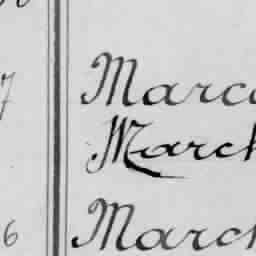 7 Marc
March
6 March